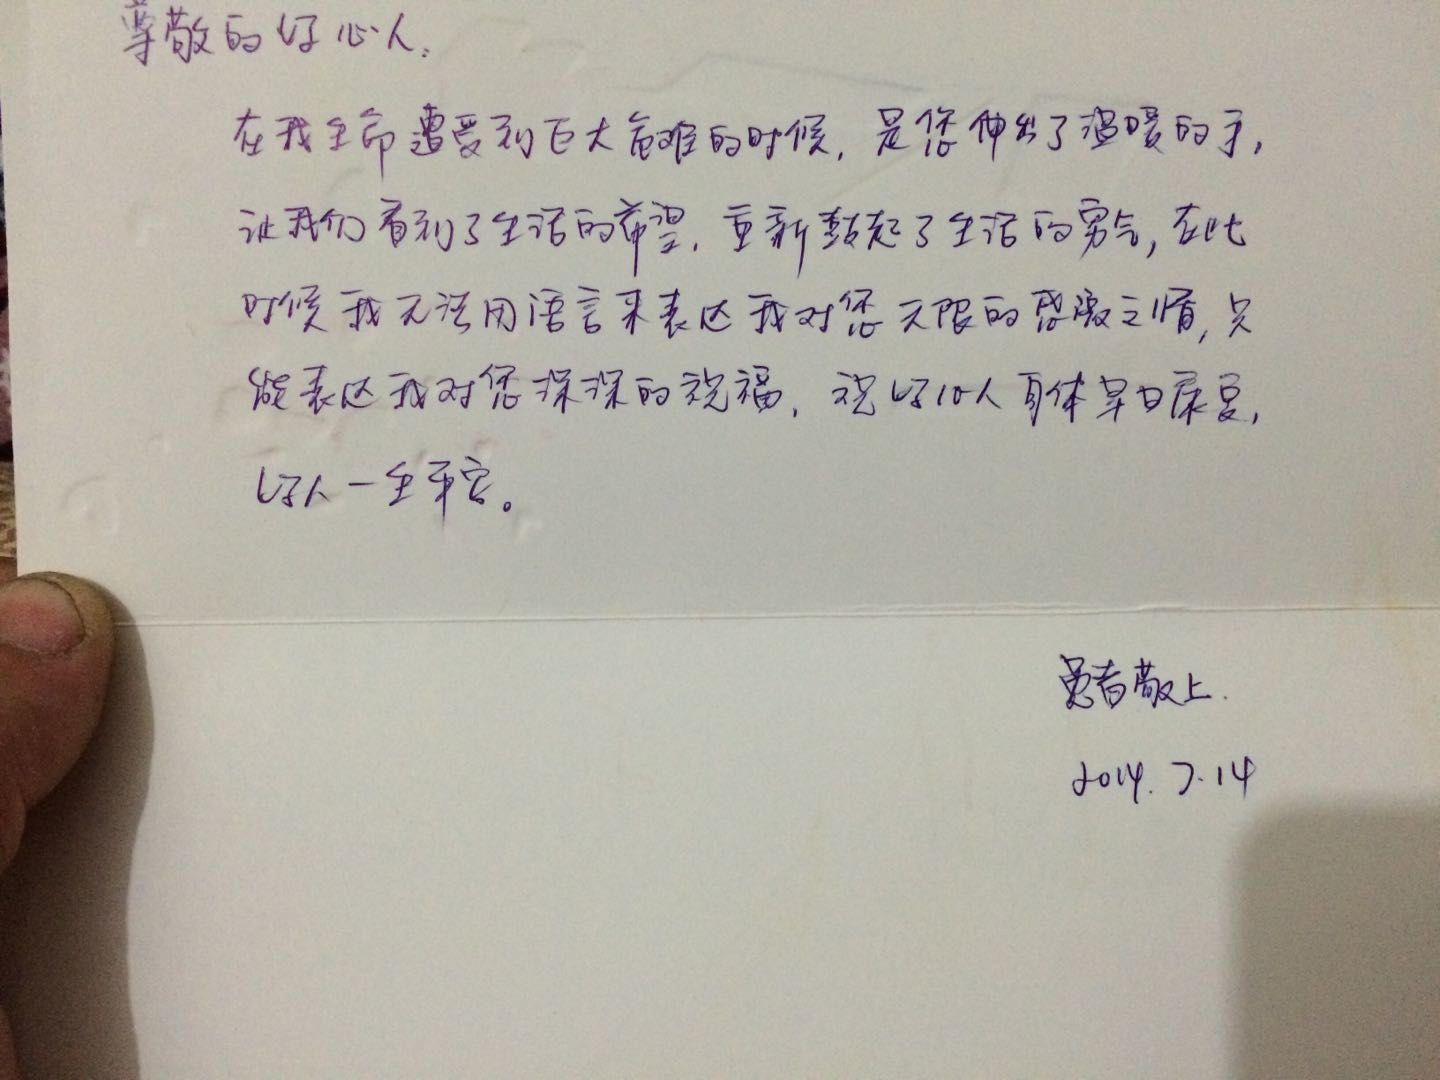 尊敬的好心人:
在我生命遭受到巨大危难的时候，是您伸出了温暖的手，
让我们看到了生活的希望，重新鼓起了生活的勇气，在此
时候我无法用语言来表达我对您无限的感激之情，只
能表达我对您深深的祝福，祝好心人身体早日康复，
好人一生平安。
患者敬上.
2014.7.14